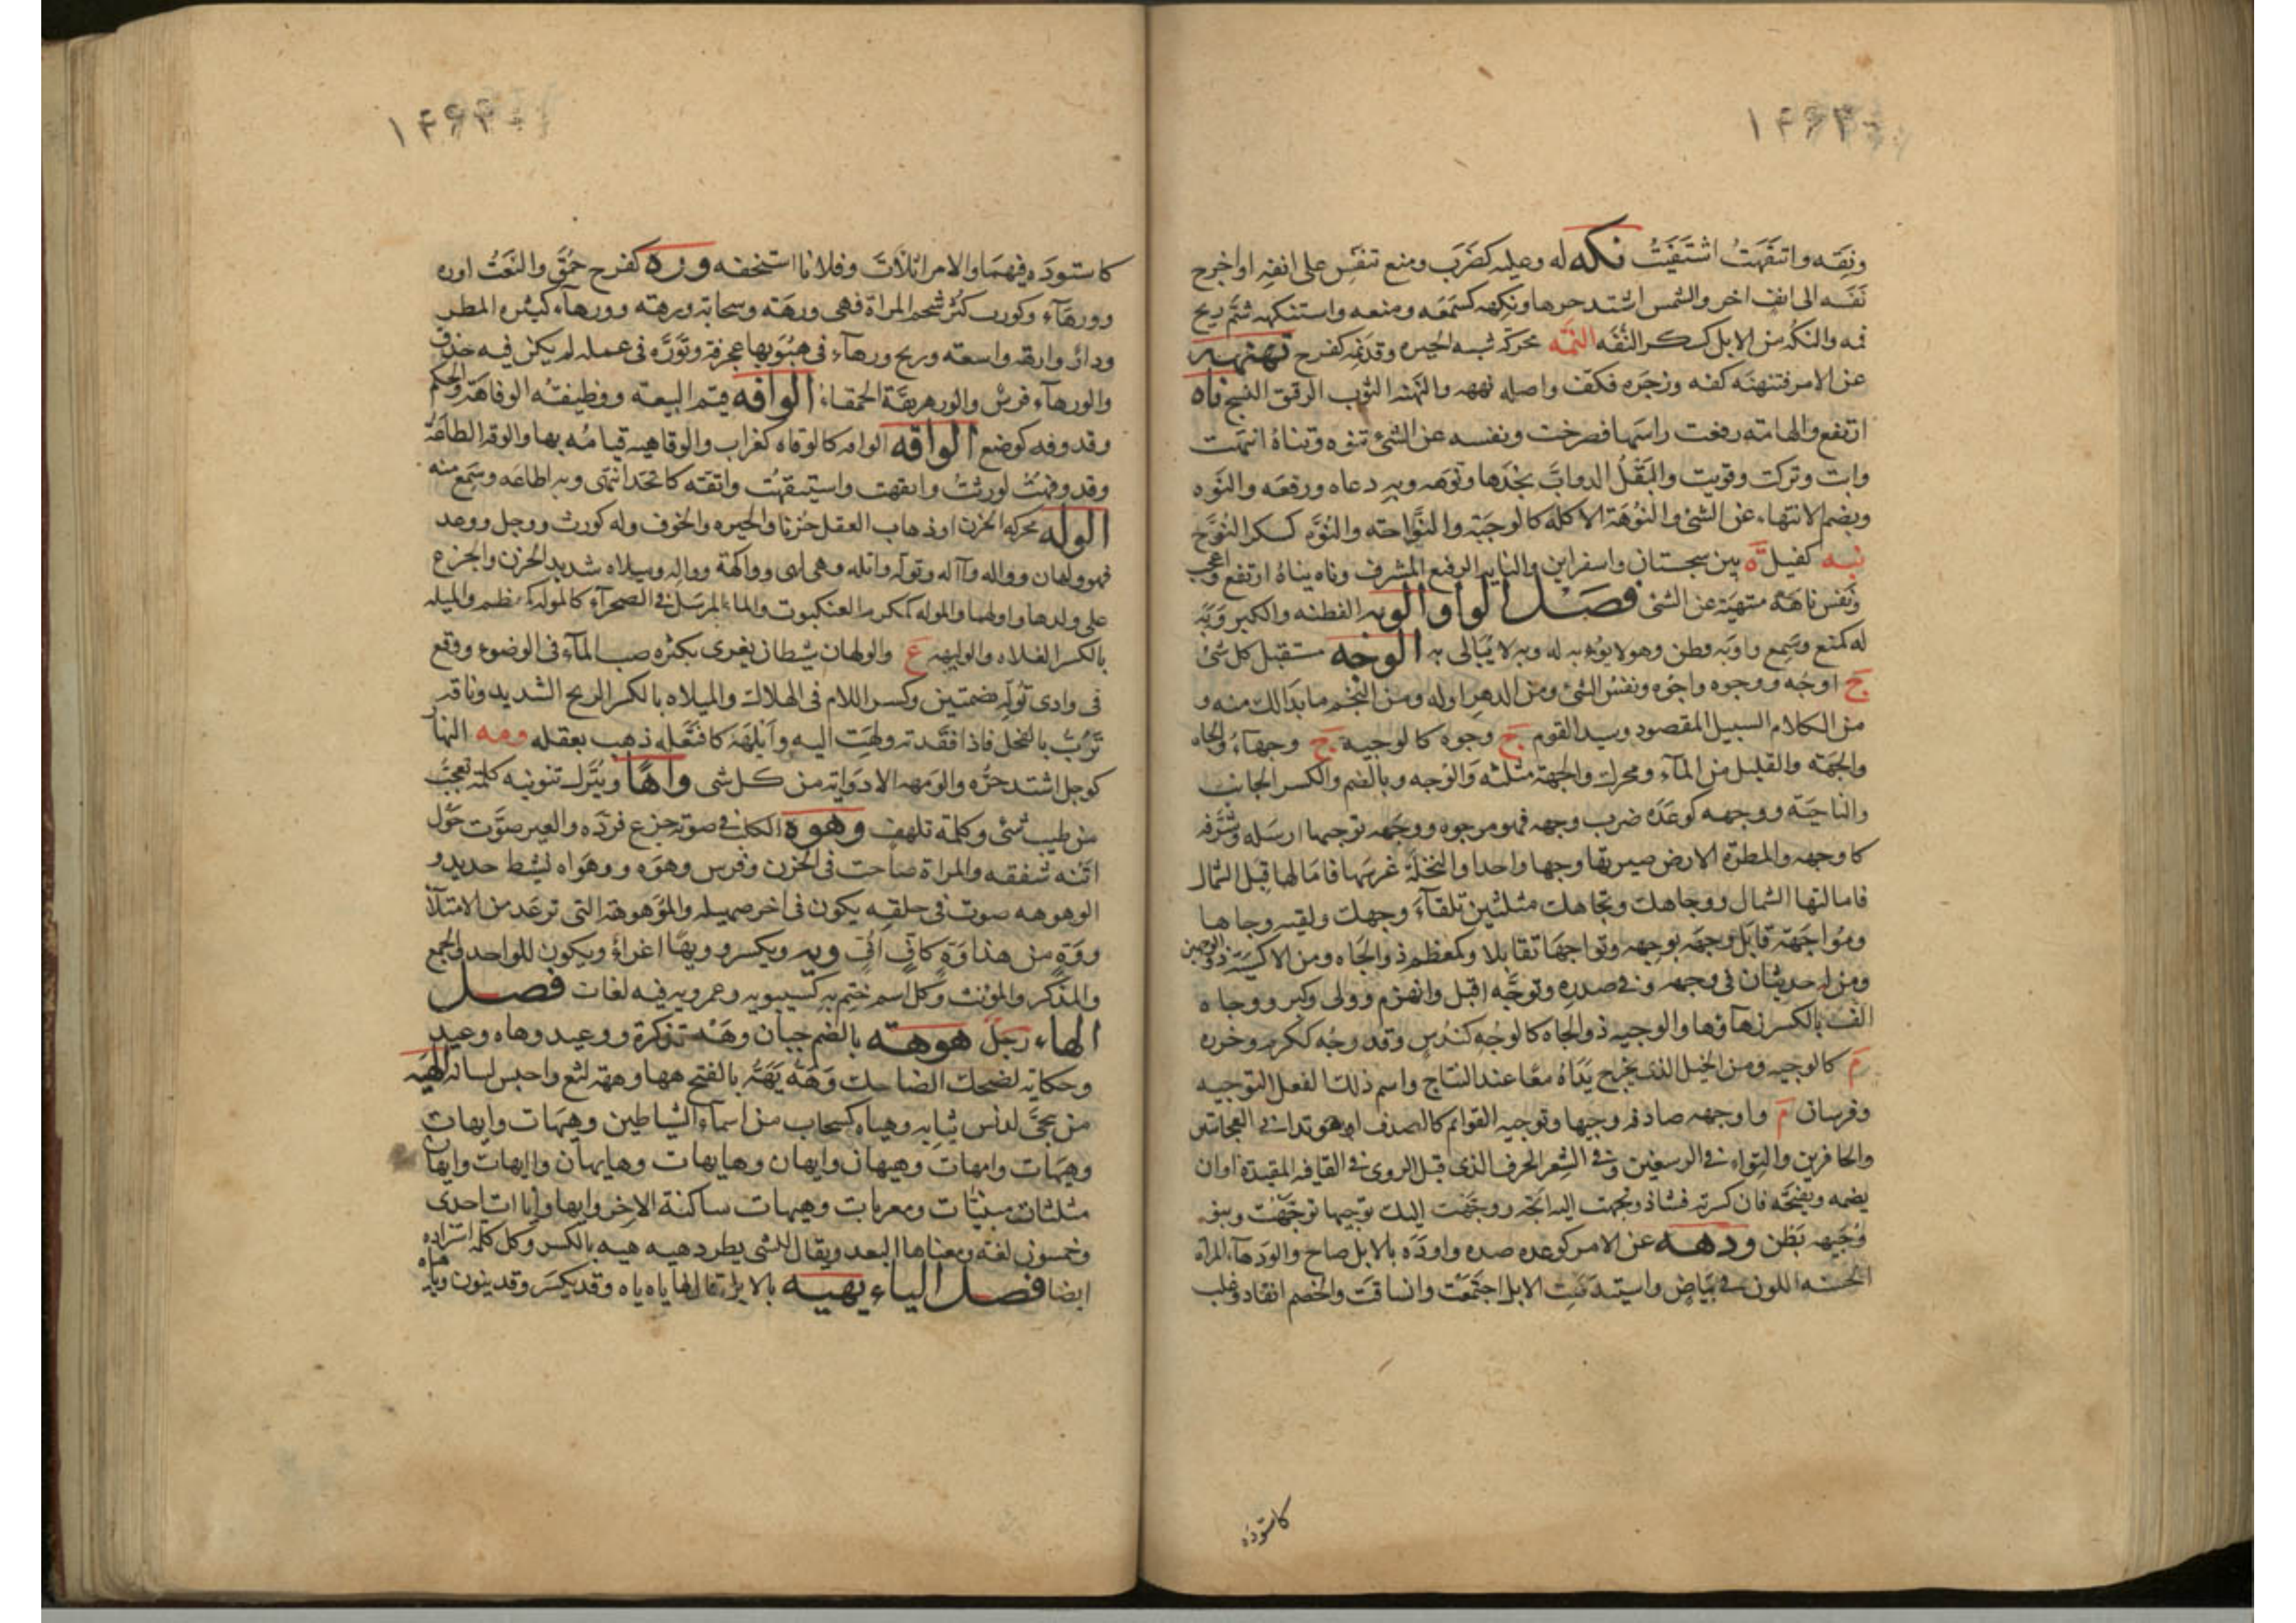 ١٤٩٣
ونفه واتنفهت اشتفيت نكه له وعليه كضرب ومنع تنفس على انفه او اخرج
نفسه الى انف اخر والشمس اشتد حرها ونكهه كسمعه ومنعه واستنكهه شم ريح
فمه والنكه من الابل كسكر النفه النمه محركة شبه الحيره وقد نمه كفرح نهنهه
عن الامر فتنهنه كفه وزجره فكف واصله نههه والنهنه الثوب الرقيق النسج ناه
ارتفع والهامة رفعت راسها فصرخت ونفسه عن الشئ تنوه وتناه انتهت
وابت وتركت وقويت والبقل الدواب مجدها ونوهه وبه دعاه ورفعه والنوه
ويضم الانتهاء عن الشئ والنوهة الاكلة كالوجبة والنواحة والنوه كسكر النوح
نيه كفيل ة بين سجستان واسفراين والنايه الرفيع المشرف وناه يناه ارتفع واعجب
ونفس ناهة منتهية عن الشئ فصل الواو الوبه الفطنه والكبر وبه
له كمنع وسمع واوبه فطن وهو لا يوبه به له وبه لا يبالى به الوجه مستقبل كل شئ
ج اوجه ووجوه واجوه ونفس الشئ ومن الدهر اوله ومن النجم ما بدا لك منه و
من الكلام السبيل المقصود وسيد القوم ج وجوه كالوجيه ج وجهاء والجاه
والجهة والقليل من الماء ومحرك والجهة مثلثه والوجه وبالضم والكسر الجانب
والناحية ووجهه كوعده ضرب وجهه فهو موجوه ووجهه توجيها ارسله وشرفه
كاوجهه والمطرة الارض صيرتها وجها واحدا والنخلة غرسها فامالها قبل الشمال
فامالتها الشمال ووجاهك وتجاهك مثلثين تلقاء وجهك ولقيه وجاها
ومواجهة قابل وجهه بوجهه وتواجها تقابلا وكمعظم ذو الجاه ومن الاكسية ذو الوجهين
ومن له حدبتان فى وجهه وفى صدره وتوجه اقبل وانهزم وولى وكبر ووجاه
الف بالكسر زهاؤها والوجيه ذو الجاه كالوجه كندس وقد وجه ككرم وخرزه
م كالوجيهه ومن الخيل الذى يخرج يداه معا عند النتاج واسم ذلك الفعل التوجيه
وفرسان م واوجهه صادفه وجيها وتوجيه القوائم كالصدف او هو تدانى العجايتين
والحافرين والتواء فى الرسغين وفى الشعر الحرف الذى قبل الروى فى القافيه المقيدة او ان
يضمه ويفتحه فان كسرته فشاذ وتجهت اليه اتجه ووجهت اليك توجيها توجهت وبنو
وجيهه بطن ودهه عن الامر كوعده صده واودهه بالابل صاح والودهاء المراه
الحسنة اللون فى بياض واستيدهت الابل اجتمعت وانساقت والخصم انقاد وغلب
كاستوده
١٤٩٤
كاستوده فيهما والامر اتلأب وفلانا استخفه وره كفرح حمق والنعت اوره
وورهاء وكورث كثر شحم المراة فهى ورهة وسحابة ورهه وورهاء كثيره المطر
ودار وارهه واسعه وريح ورهاء فى هبوبها عجرفة وتوره فى عمله لم يكن فيه حذق
والورهاء فرس والورهرهة الحمقاء الوافه قيم البيعة ووظيفته الوفاهة والحكم
وقد وفه كوضع الواقه الوافه كالوقاه كغراب والوقاهية قيامه بها والوقه الطاعة
وقد وقهت كورثت وايقهت واستيقهت واتقه كاتحد انتهى وبه اطاعه وسمع منه
الوله محركة الحزن او ذهاب العقل حزنا والحيره والخوف وله كورث ووجل ووعد
فهو ولهان وواله وآله وتوله واتله وهى ولهى ووالهة وواله وميلاه شديد الحزن والجزع
على ولدها واولهها والموله كمكرم العنكبوت والماء المرسل فى الصحراء كالموله كمعظم والميله
بالكسر الفلاه والوليهه ع والولهان شيطان يغرى بكثره صب الماء فى الوضوء ووقع
فى وادى توله بضمتين وكسر اللام فى الهلاك والميلاه بالكسر الريح الشديد وناقه
ترب بالفحل فاذا فقدته ولهت اليه وايلهه كافتعله ذهب بعقله ومه النهار
كوجل اشتد حره والومهه الادوابة من كل شى واها ويترك تنوينه كلمة تعجب
من طيب شئ وكلمة تلهف وهوه الكلب فى صوته جزع فردده والعير صوت حول
اتنه شفقه والمراة صاحت فى الحزن وفرس وهوه ووهواه نشيط حديد و
الوهوهه صوت فى حلقه يكون فى اخر صهيله والموهوهة التى ترعد من الامتلا
ووة من هذا وة كاف اف ويه ويكسر وويها اغراء ويكون للواحد والجمع
والمذكر والمونث وكل اسم ختم به كسيبويه وعمرويه فيه لغات فصل
الهاء رجل هوهه بالضم جبان وهه تذكرة ووعيد وهاه وعيد
وحكاية لضحك الضاحك وهه يهه بالفتح هها وههه لثغ واحبس لسانه الهيه
من ينحى لدنس ثيابه وهياه كسحاب من اسماء الشياطين وهيهات وايهات
وهيهات وايهات وهيهان وايهان وهايهات وهايهان وآايهات وايهان
مثلثات مبنيات ومعربات وهيهات ساكنة الاخر وايها وايآات احدى
وخمسون لغة ومعناها البعد ويقال للشئ يطرد هيه هيه بالكسر وكل كلمه استزاده
ايضا فصل الياء يهيه بالابل قال لها ياه ياه وقد يكسر وقد ينون وياه